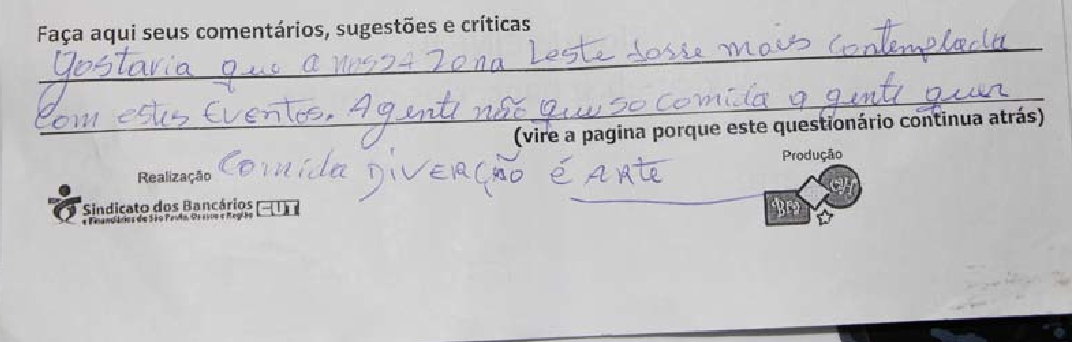 Faça aqui seus comentários, sugestões e críticas
Gostaria que a nossa Zona Leste fosse mais contemplada
com estes Eventos. Agente não que so comida a gente quer
(vire a pagina porque este questionário continua atrás)
Comida DiVERÇÃO é ARte
Realização
Produção
Sindicato dos Bancários CUT
e Financiários de São Paulo, Osasco e Região